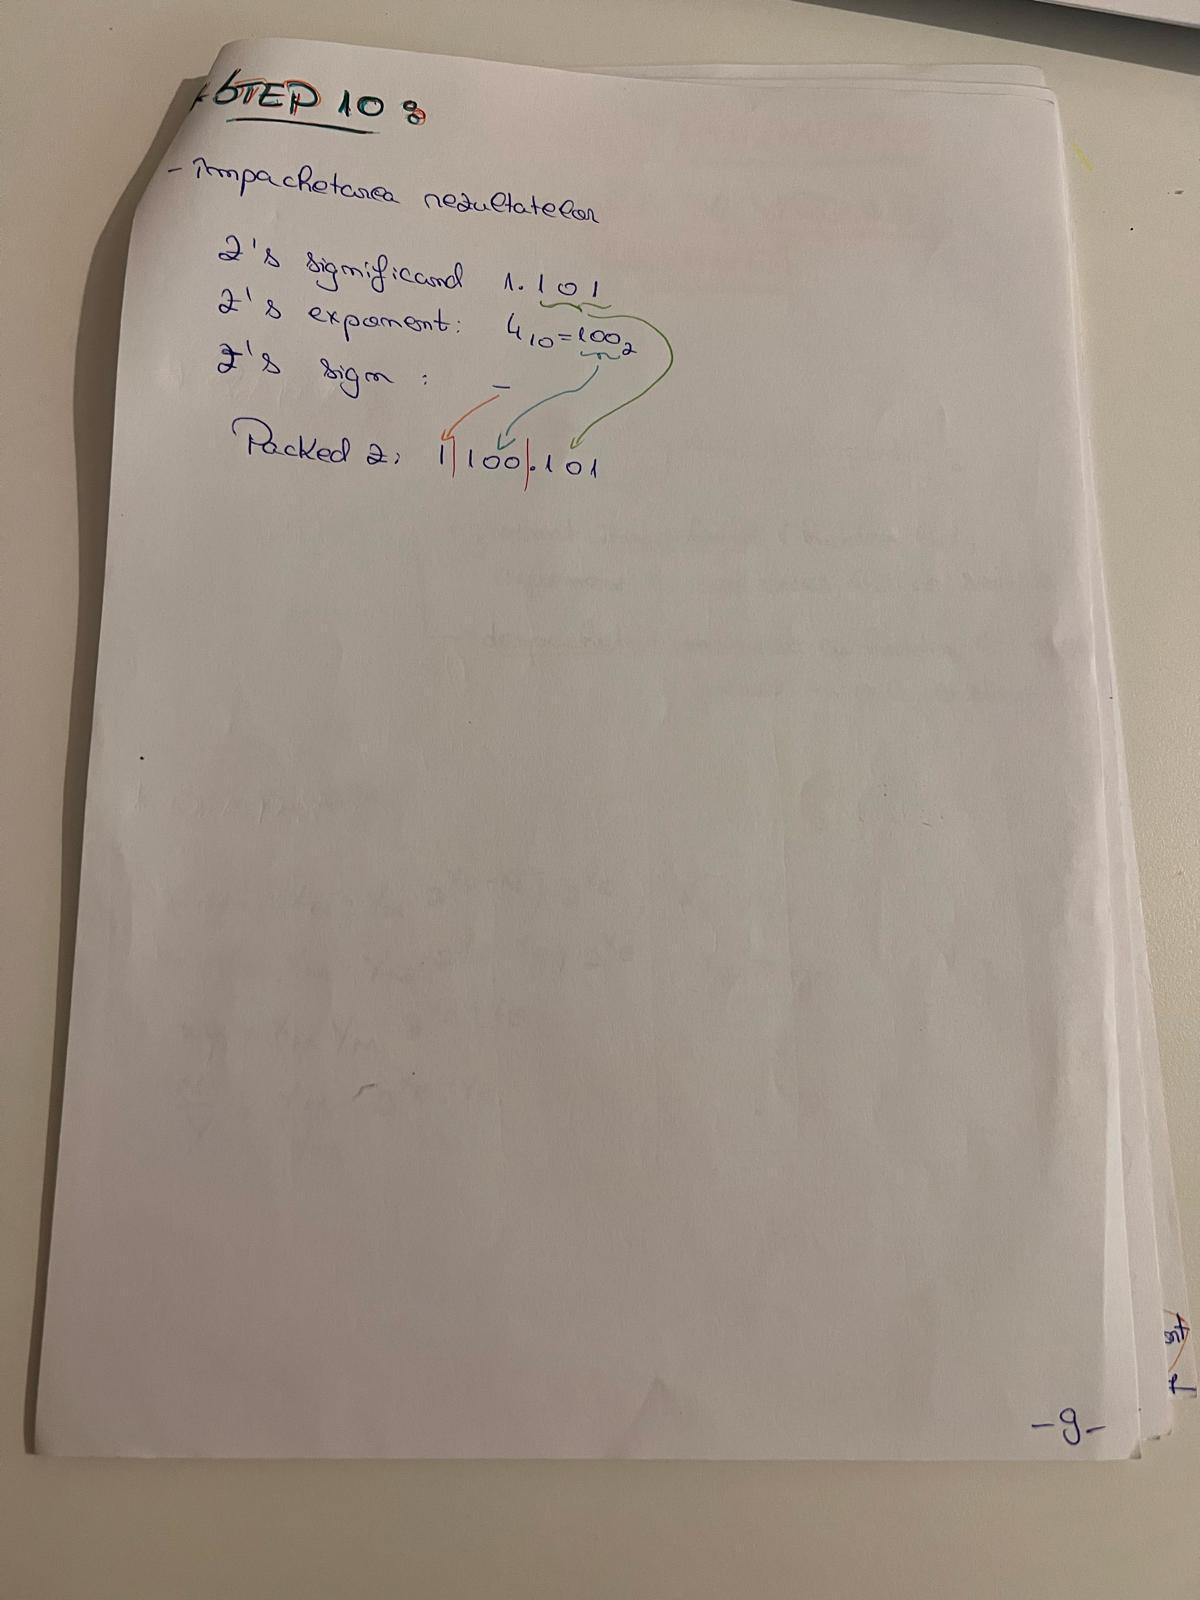 STEP 10:
- Împachetarea rezultatelor
Z's significand 1.101
Z's exponent: 4₁₀=100₂
Z's sign : -
Packed Z: 1|100|.101
-9-